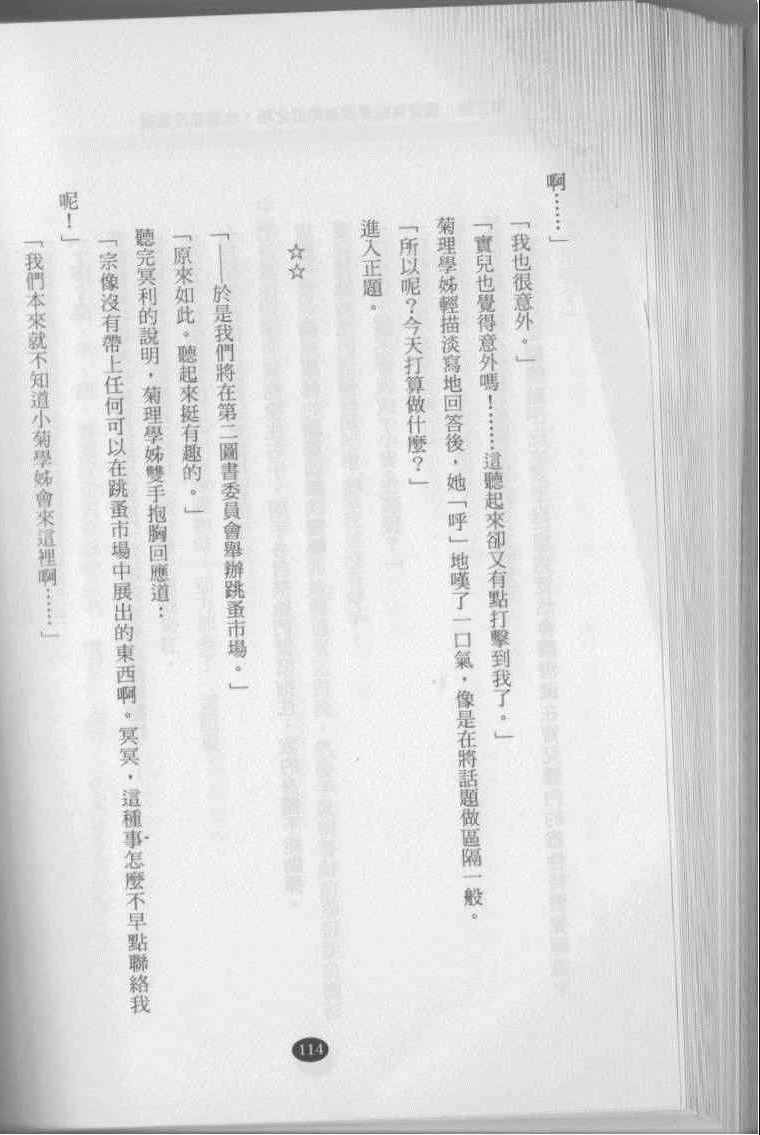 啊……」
「我也很意外。」
「實兒也覺得意外嗎！……這聽起來卻又有點打擊到我了。」
菊理學姊輕描淡寫地回答後，她「呼」地嘆了一口氣，像是在將話題做區隔一般。
「所以呢？今天打算做什麼？」
進入正題。
☆☆
「——於是我們將在第二圖書委員會舉辦跳蚤市場。」
「原來如此。聽起來挺有趣的。」
聽完冥利的說明，菊理學姊雙手抱胸回應道：
「宗像沒有帶上任何可以在跳蚤市場中展出的東西啊。冥冥，這種事怎麼不早點聯絡我
呢！」
「我們本來就不知道小菊學姊會來這裡啊……」
114